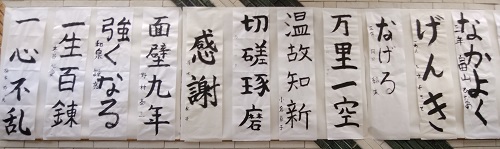 なかよく
げんき
なげる
万里一空
温故知新
切磋琢磨
感謝
面壁九年
強くなる
一生百錬
一心不乱